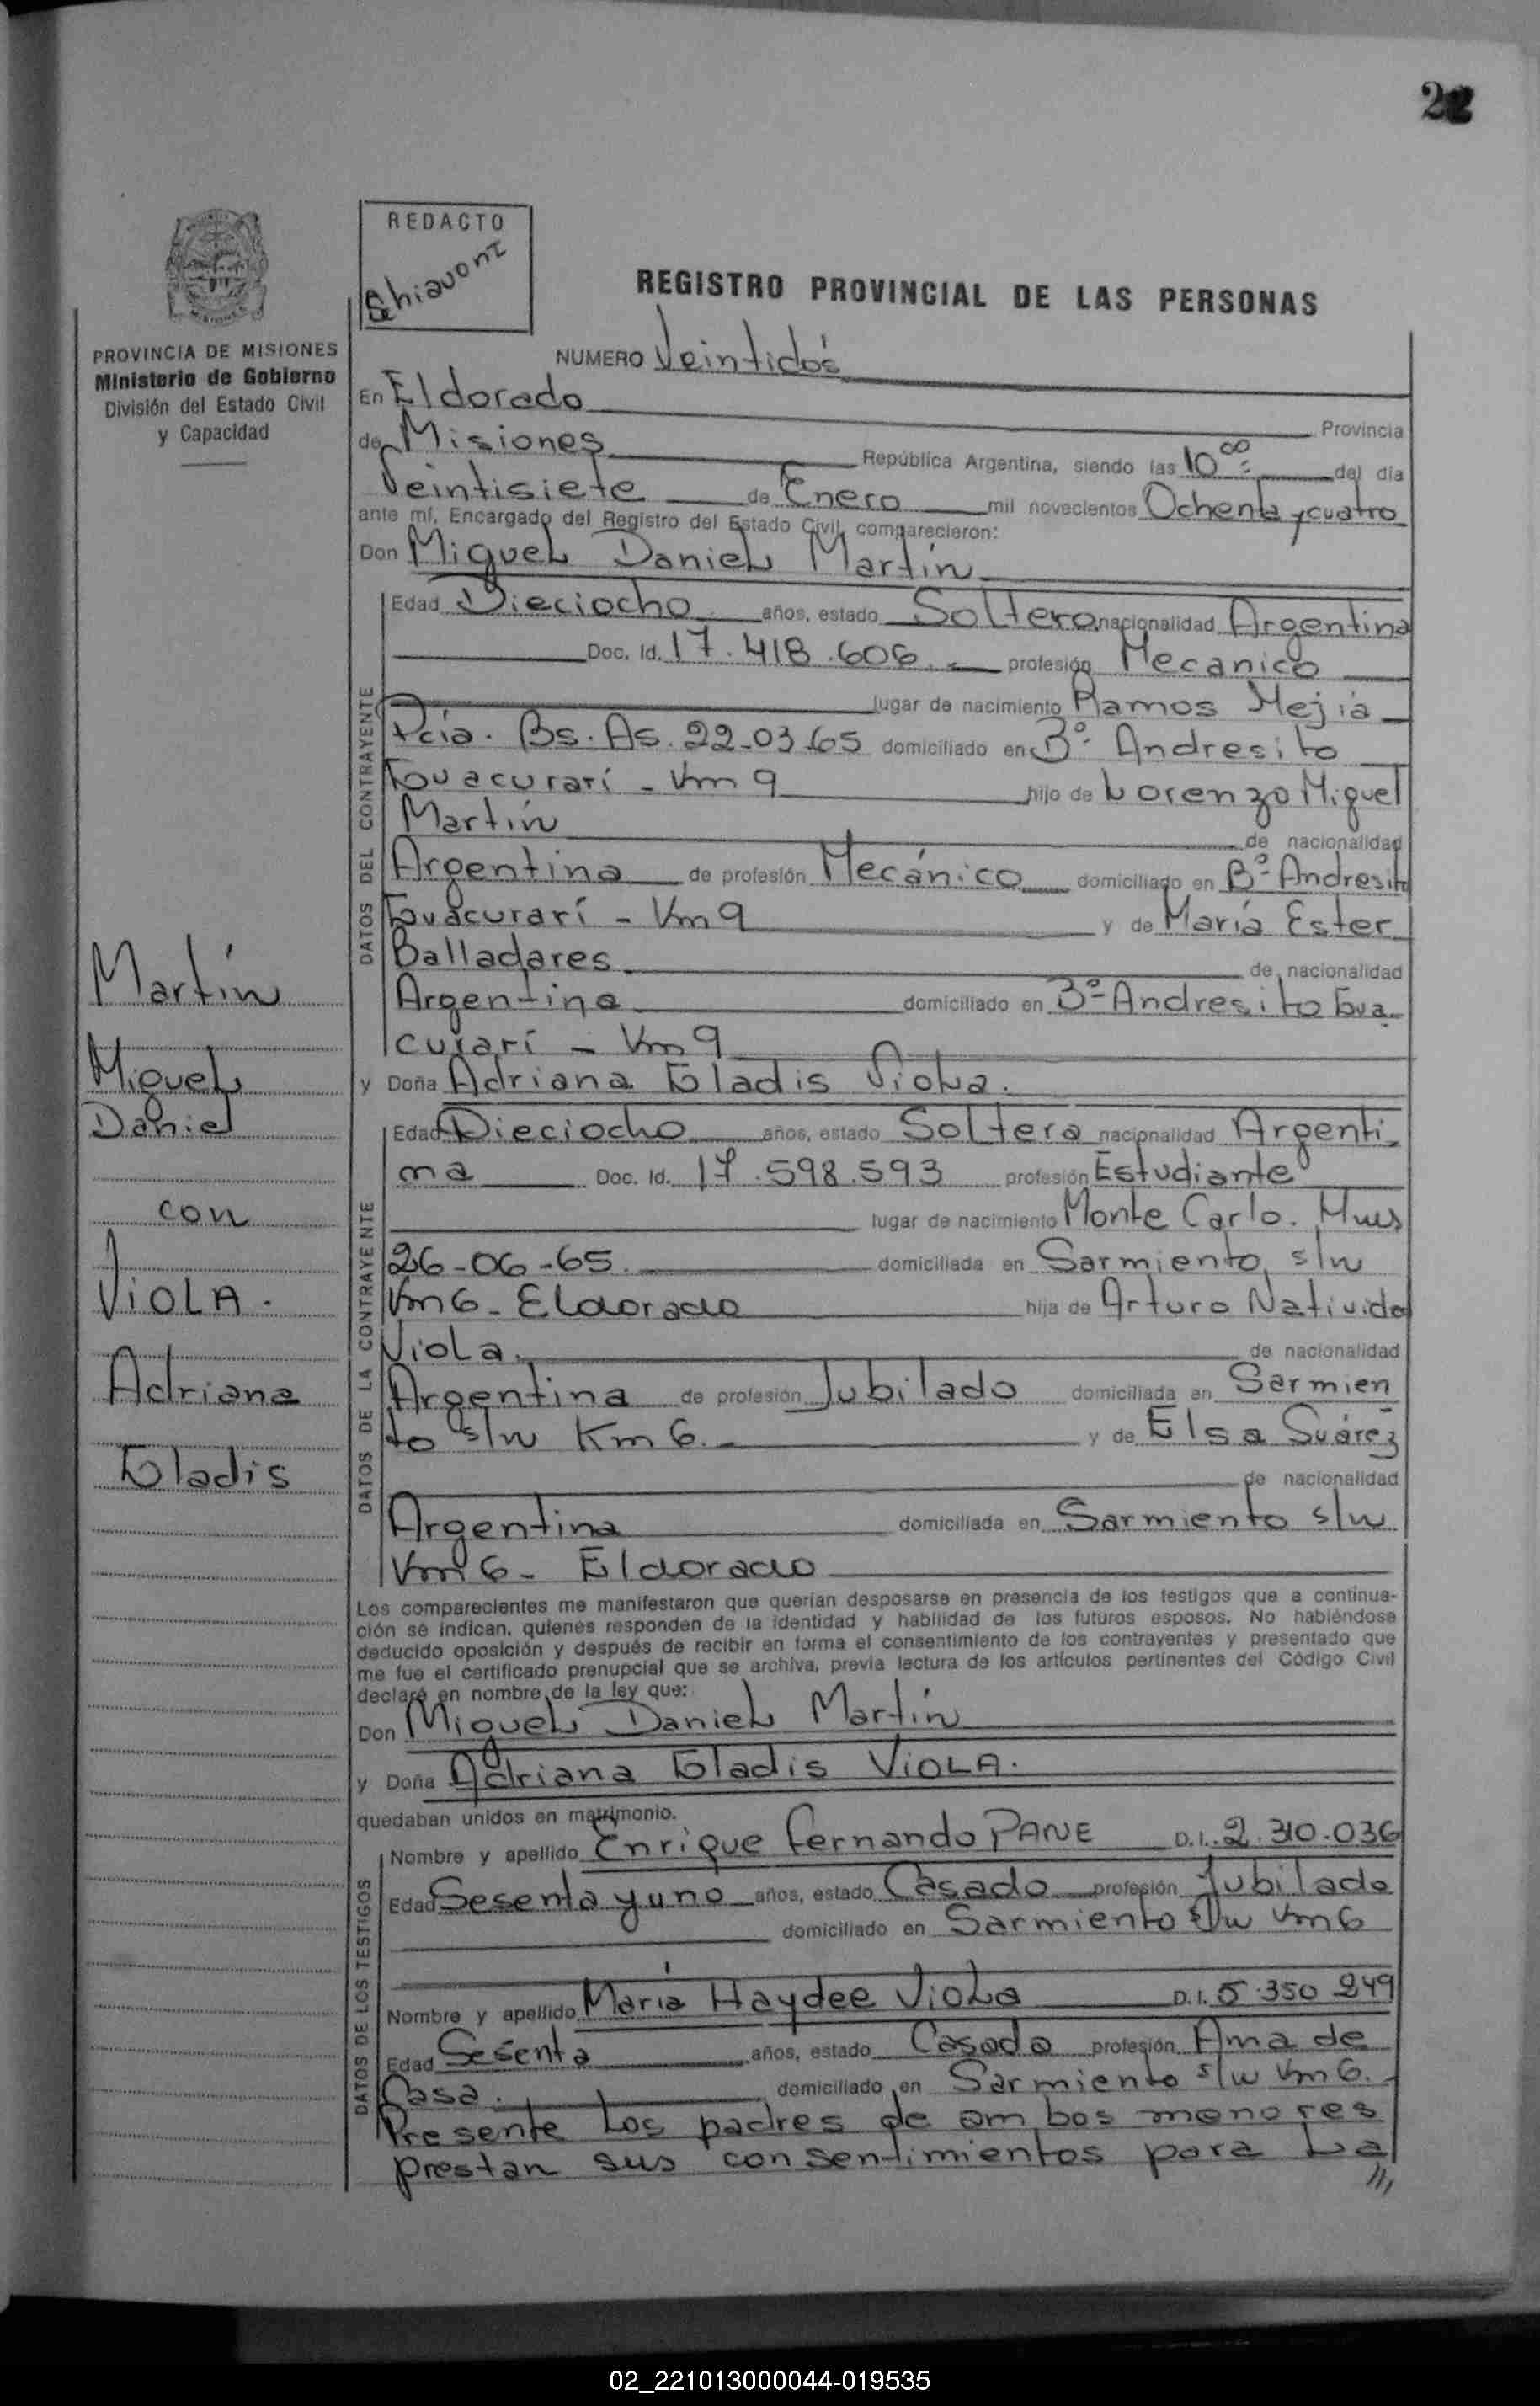 22
REDACTO
Schiavoni
REGISTRO PROVINCIAL DE LAS PERSONAS
PROVINCIA DE MISIONES
Ministerio de Gobierno
División del Estado Civil
y Capacidad
NUMERO Veintidós
En Eldorado Provincia
de Misiones República Argentina, siendo las 10 00 del día
Veintisiete de Enero mil novecientos Ochenta y cuatro
ante mí, Encargado del Registro del Estado Civil, comparecieron:
Don Miguel Daniel Martín
DATOS DEL CONTRAYENTE
Edad Dieciocho años, estado Soltero nacionalidad Argentina
Doc. Id. 17.418.606. profesión Mecanico
lugar de nacimiento Ramos Mejia
Pcia. Bs. As. 22-03-65 domiciliado en Bº Andresito
Guacurarí - Km 9 hijo de Lorenzo Miguel
Martín de nacionalidad
Argentina de profesión Mecánico domiciliado en Bº Andresito
Guacurarí - Km 9 y de María Ester
Balladares de nacionalidad
Argentina domiciliado en Bº Andresito Gua
curarí - Km 9
y Doña Adriana Gladis Viola.
DATOS DE LA CONTRAYENTE
Edad Dieciocho años, estado Soltera nacionalidad Argenti
na Doc. Id. 17.598.593 profesión Estudiante
lugar de nacimiento Monte Carlo. Mnes
26-06-65. domiciliada en Sarmiento s/n
Km 6 - Eldorado hija de Arturo Nativida
Viola. de nacionalidad
Argentina de profesión Jubilado domiciliada en Sarmien
to s/n Km 6. y de Elsa Suárez
de nacionalidad
Argentina domiciliada en Sarmiento s/n
Km 6 - Eldorado
Los comparecientes me manifestaron que querían desposarse en presencia de los testigos que a continua-
ción se indican, quienes responden de la identidad y habilidad de los futuros esposos. No habiéndose
deducido oposición y después de recibir en forma el consentimiento de los contrayentes y presentado que
me fue el certificado prenupcial que se archiva, previa lectura de los artículos pertinentes del Código Civil
declaré en nombre de la ley que:
Don Miguel Daniel Martín
y Doña Adriana Gladis VIOLA.
quedaban unidos en matrimonio.
DATOS DE LOS TESTIGOS
Nombre y apellido Enrique Fernando PANE D.I. 2.310.036
Edad Sesenta y uno años, estado Casado profesión Jubilado
domiciliado en Sarmiento s/n Km 6
Nombre y apellido María Haydee Viola D.I. 5.350 249
Edad Sesenta años, estado Casada profesión Ama de
Casa. domiciliado en Sarmiento s/n Km 6.
Presente Los padres de ambos menores
prestan sus consentimientos para La
///
Martín
Miguel
Daniel
con
VIOLA.
Adriana
Gladis
02_221013000044-019535